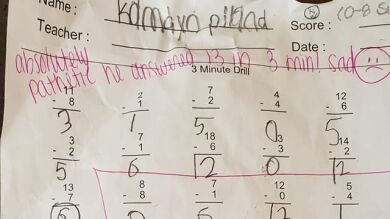 Name :
Kamdyn piland
Score :
Teacher :
Date :
absolutely
pathitic he answered 13 in 3 min! sad
3 Minute Drill
11 2 7 4 12
- 8 - 1 - 2 - 4 - 6
3 1 5 0 5
3 7 18 3 14
- 2 - 1 - 6 - 3 - 2
5 6 12 0 12
13 8 7 12 5
- 7 - 8 - 1 - 0 - 4